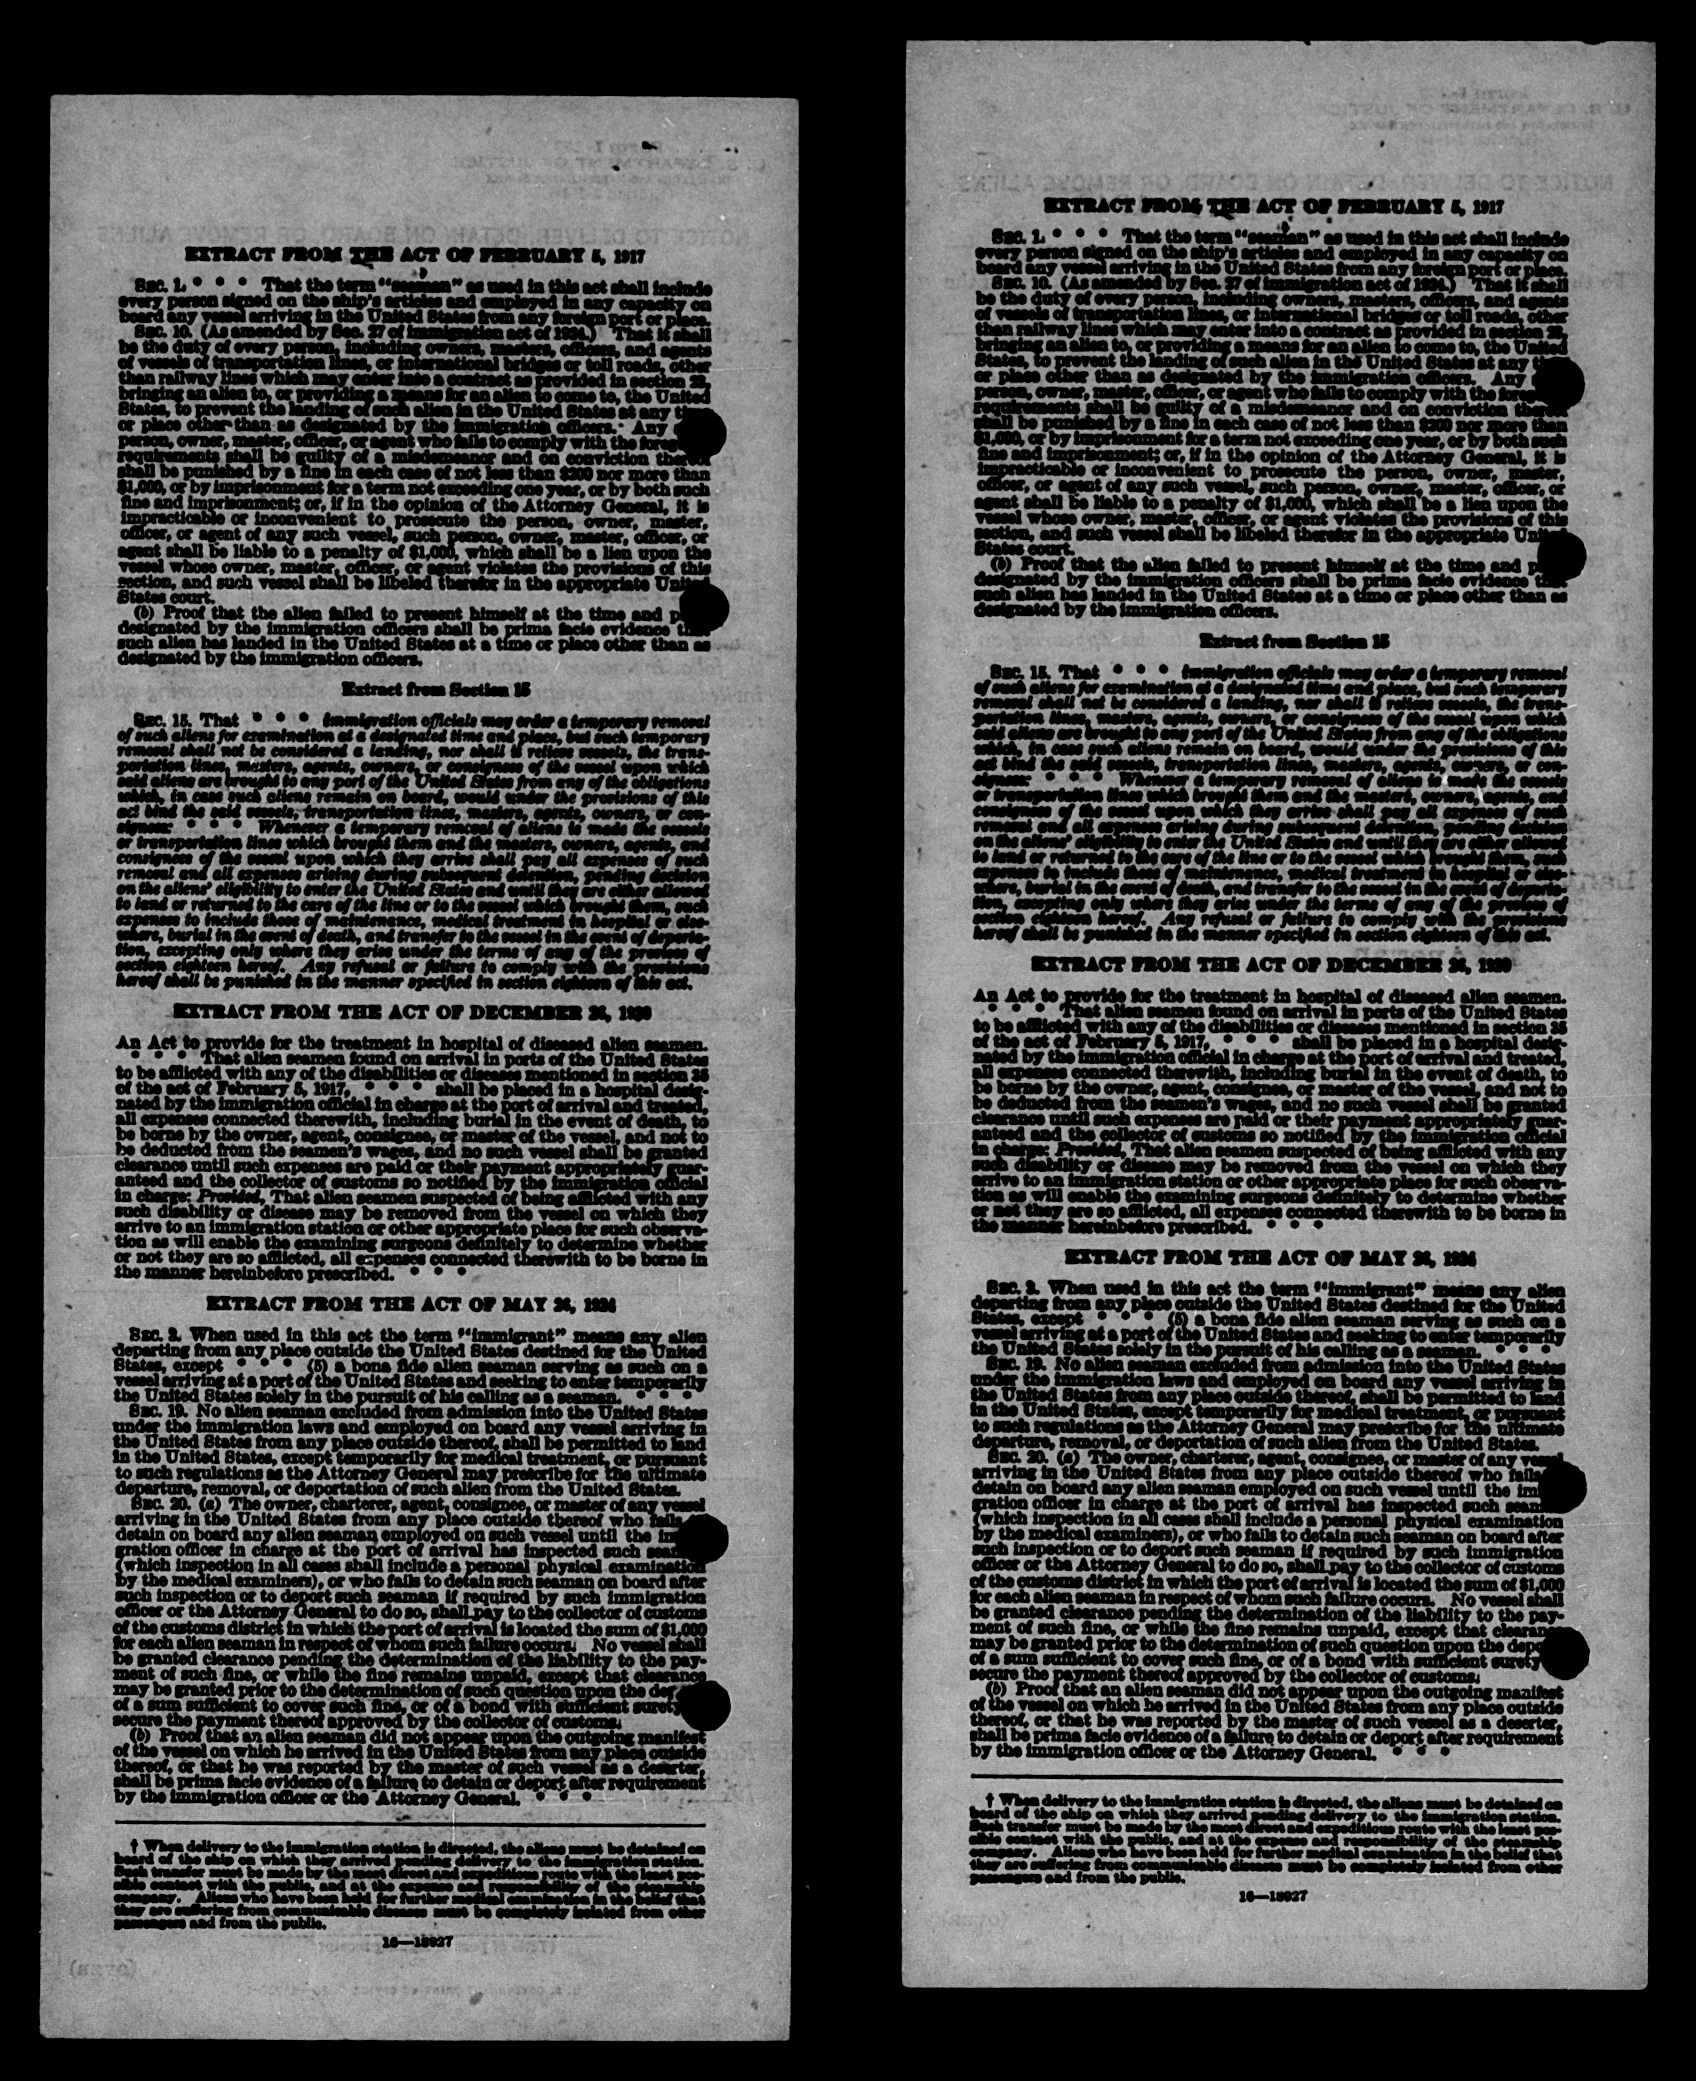 EXTRACT FROM THE ACT OF FEBRUARY 5, 1917
SEC. 1. * * * That the term "seaman" as used in this act shall include
every person signed on the ship's articles and employed in any capacity on
board any vessel arriving in the United States from any foreign port or place.
SEC. 10. (As amended by Sec. 27 of immigration act of 1924.) That it shall
be the duty of every person, including owners, masters, officers, and agents
of vessels of transportation lines, or international bridges or toll roads, other
than railway lines which may enter into a contract as provided in section 23,
bringing an alien to, or providing a means for an alien to come to, the United
States, to prevent the landing of such alien in the United States at any
or place other than as designated by the immigration officers. Any
person, owner, master, officer, or agent who fails to comply with the
requirements shall be guilty of a misdemeanor and on conviction thereof
shall be punished by a fine in each case of not less than $200 nor more than
$1,000, or by imprisonment for a term not exceeding one year, or by both such
fine and imprisonment; or, if in the opinion of the Attorney General, it is
impracticable or inconvenient to prosecute the person, owner, master,
officer, or agent of any such vessel, such person, owner, master, officer, or
agent shall be liable to a penalty of $1,000, which shall be a lien upon the
vessel whose owner, master, officer, or agent violates the provisions of this
section, and such vessel shall be libeled therefor in the appropriate United
States court.
(b) Proof that the alien failed to present himself at the time and
designated by the immigration officers shall be prima facie evidence that
such alien has landed in the United States at a time or place other than as
designated by the immigration officers.
Extract from Section 15
SEC. 15. That * * * immigration officials may order a temporary removal
of such aliens for examination at a designated time and place, but such temporary
removal shall not be considered a landing, nor shall it relieve vessels, the trans-
portation lines, masters, agents, owners, or consignees of the vessel upon which
said aliens are brought to any port of the United States from any of the obligations
which, in case such aliens remain on board, would under the provisions of this
act bind the said vessels, transportation lines, masters, agents, owners, or con-
signees: * * * Whenever a temporary removal of aliens is made the vessels
or transportation lines which brought them and the masters, owners, agents, and
consignees of the vessel upon which they arrive shall pay all expenses of such
removal and all expenses arising during subsequent detention, pending decision
on the aliens' eligibility to enter the United States and until they are either allowed
to land or returned to the care of the line or to the vessel which brought them, such
expenses to include those of maintenance, medical treatment in hospital or else-
where, burial in the event of death, and transfer to the vessel in the event of deporta-
tion, excepting only where they arise under the terms of any of the provisos of
section eighteen hereof. Any refusal or failure to comply with the provisions
hereof shall be punished in the manner specified in section eighteen of this act.
EXTRACT FROM THE ACT OF DECEMBER 26, 1920
An Act to provide for the treatment in hospital of diseased alien seamen.
* * * That alien seamen found on arrival in ports of the United States
to be afflicted with any of the disabilities or diseases mentioned in section 35
of the act of February 5, 1917, * * * shall be placed in a hospital desig-
nated by the immigration official in charge at the port of arrival and treated,
all expenses connected therewith, including burial in the event of death, to
be borne by the owner, agent, consignee, or master of the vessel, and not to
be deducted from the seamen's wages, and no such vessel shall be granted
clearance until such expenses are paid or their payment appropriately guar-
anteed and the collector of customs so notified by the immigration official
in charge: Provided, That alien seamen suspected of being afflicted with any
such disability or disease may be removed from the vessel on which they
arrive to an immigration station or other appropriate place for such observa-
tion as will enable the examining surgeons definitely to determine whether
or not they are so afflicted, all expenses connected therewith to be borne in
the manner hereinbefore prescribed. * * *
EXTRACT FROM THE ACT OF MAY 26, 1924
SEC. 3. When used in this act the term "immigrant" means any alien
departing from any place outside the United States destined for the United
States, except * * * (5) a bona fide alien seaman serving as such on a
vessel arriving at a port of the United States and seeking to enter temporarily
the United States solely in the pursuit of his calling as a seaman. * * *
SEC. 19. No alien seaman excluded from admission into the United States
under the immigration laws and employed on board any vessel arriving in
the United States from any place outside thereof, shall be permitted to land
in the United States, except temporarily for medical treatment, or pursuant
to such regulations as the Attorney General may prescribe for the ultimate
departure, removal, or deportation of such alien from the United States.
SEC. 20. (a) The owner, charterer, agent, consignee, or master of any vessel
arriving in the United States from any place outside thereof who fails
detain on board any alien seaman employed on such vessel until the
gration officer in charge at the port of arrival has inspected such
(which inspection in all cases shall include a personal physical examination
by the medical examiners), or who fails to detain such seaman on board after
such inspection or to deport such seaman if required by such immigration
officer or the Attorney General to do so, shall pay to the collector of customs
of the customs district in which the port of arrival is located the sum of $1,000
for each alien seaman in respect of whom such failure occurs. No vessel shall
be granted clearance pending the determination of the liability to the pay-
ment of such fine, or while the fine remains unpaid, except that clearance
may be granted prior to the determination of such question upon the
of a sum sufficient to cover such fine, or of a bond with sufficient surety
secure the payment thereof approved by the collector of customs.
(b) Proof that an alien seaman did not appear upon the outgoing manifest
of the vessel on which he arrived in the United States from any place outside
thereof, or that he was reported by the master of such vessel as a deserter,
shall be prima facie evidence of a failure to detain or deport after requirement
by the immigration officer or the Attorney General. * * *
† When delivery to the immigration station is directed, the aliens must be detained on
board of the ship on which they arrived pending delivery to the immigration station.
Such transfer must be made by the most direct and expeditious route with the least pos-
sible contact with the public, and at the expense and responsibility of the steamship
company. Aliens who have been held for further medical examination in the belief that
they are suffering from communicable diseases must be completely isolated from other
passengers and from the public.
16—18927
EXTRACT FROM THE ACT OF FEBRUARY 5, 1917
SEC. 1. * * * That the term "seaman" as used in this act shall include
every person signed on the ship's articles and employed in any capacity on
board any vessel arriving in the United States from any foreign port or place.
SEC. 10. (As amended by Sec. 27 of immigration act of 1924.) That it shall
be the duty of every person, including owners, masters, officers, and agents
of vessels of transportation lines, or international bridges or toll roads, other
than railway lines which may enter into a contract as provided in section 23,
bringing an alien to, or providing a means for an alien to come to, the United
States, to prevent the landing of such alien in the United States at any
or place other than as designated by the immigration officers. Any
person, owner, master, officer, or agent who fails to comply with the
requirements shall be guilty of a misdemeanor and on conviction thereof
shall be punished by a fine in each case of not less than $200 nor more than
$1,000, or by imprisonment for a term not exceeding one year, or by both such
fine and imprisonment; or, if in the opinion of the Attorney General, it is
impracticable or inconvenient to prosecute the person, owner, master,
officer, or agent of any such vessel, such person, owner, master, officer, or
agent shall be liable to a penalty of $1,000, which shall be a lien upon the
vessel whose owner, master, officer, or agent violates the provisions of this
section, and such vessel shall be libeled therefor in the appropriate United
States court.
(b) Proof that the alien failed to present himself at the time and
designated by the immigration officers shall be prima facie evidence that
such alien has landed in the United States at a time or place other than as
designated by the immigration officers.
Extract from Section 15
SEC. 15. That * * * immigration officials may order a temporary removal
of such aliens for examination at a designated time and place, but such temporary
removal shall not be considered a landing, nor shall it relieve vessels, the trans-
portation lines, masters, agents, owners, or consignees of the vessel upon which
said aliens are brought to any port of the United States from any of the obligations
which, in case such aliens remain on board, would under the provisions of this
act bind the said vessels, transportation lines, masters, agents, owners, or con-
signees: * * * Whenever a temporary removal of aliens is made the vessels
or transportation lines which brought them and the masters, owners, agents, and
consignees of the vessel upon which they arrive shall pay all expenses of such
removal and all expenses arising during subsequent detention, pending decision
on the aliens' eligibility to enter the United States and until they are either allowed
to land or returned to the care of the line or to the vessel which brought them, such
expenses to include those of maintenance, medical treatment in hospital or else-
where, burial in the event of death, and transfer to the vessel in the event of deporta-
tion, excepting only where they arise under the terms of any of the provisos of
section eighteen hereof. Any refusal or failure to comply with the provisions
hereof shall be punished in the manner specified in section eighteen of this act.
EXTRACT FROM THE ACT OF DECEMBER 26, 1920
An Act to provide for the treatment in hospital of diseased alien seamen.
* * * That alien seamen found on arrival in ports of the United States
to be afflicted with any of the disabilities or diseases mentioned in section 35
of the act of February 5, 1917, * * * shall be placed in a hospital desig-
nated by the immigration official in charge at the port of arrival and treated,
all expenses connected therewith, including burial in the event of death, to
be borne by the owner, agent, consignee, or master of the vessel, and not to
be deducted from the seamen's wages, and no such vessel shall be granted
clearance until such expenses are paid or their payment appropriately guar-
anteed and the collector of customs so notified by the immigration official
in charge: Provided, That alien seamen suspected of being afflicted with any
such disability or disease may be removed from the vessel on which they
arrive to an immigration station or other appropriate place for such observa-
tion as will enable the examining surgeons definitely to determine whether
or not they are so afflicted, all expenses connected therewith to be borne in
the manner hereinbefore prescribed. * * *
EXTRACT FROM THE ACT OF MAY 26, 1924
SEC. 3. When used in this act the term "immigrant" means any alien
departing from any place outside the United States destined for the United
States, except * * * (5) a bona fide alien seaman serving as such on a
vessel arriving at a port of the United States and seeking to enter temporarily
the United States solely in the pursuit of his calling as a seaman. * * *
SEC. 19. No alien seaman excluded from admission into the United States
under the immigration laws and employed on board any vessel arriving in
the United States from any place outside thereof, shall be permitted to land
in the United States, except temporarily for medical treatment, or pursuant
to such regulations as the Attorney General may prescribe for the ultimate
departure, removal, or deportation of such alien from the United States.
SEC. 20. (a) The owner, charterer, agent, consignee, or master of any vessel
arriving in the United States from any place outside thereof who fails
detain on board any alien seaman employed on such vessel until the
gration officer in charge at the port of arrival has inspected such
(which inspection in all cases shall include a personal physical examination
by the medical examiners), or who fails to detain such seaman on board after
such inspection or to deport such seaman if required by such immigration
officer or the Attorney General to do so, shall pay to the collector of customs
of the customs district in which the port of arrival is located the sum of $1,000
for each alien seaman in respect of whom such failure occurs. No vessel shall
be granted clearance pending the determination of the liability to the pay-
ment of such fine, or while the fine remains unpaid, except that clearance
may be granted prior to the determination of such question upon the
of a sum sufficient to cover such fine, or of a bond with sufficient surety
secure the payment thereof approved by the collector of customs.
(b) Proof that an alien seaman did not appear upon the outgoing manifest
of the vessel on which he arrived in the United States from any place outside
thereof, or that he was reported by the master of such vessel as a deserter,
shall be prima facie evidence of a failure to detain or deport after requirement
by the immigration officer or the Attorney General. * * *
† When delivery to the immigration station is directed, the aliens must be detained on
board of the ship on which they arrived pending delivery to the immigration station.
Such transfer must be made by the most direct and expeditious route with the least pos-
sible contact with the public, and at the expense and responsibility of the steamship
company. Aliens who have been held for further medical examination in the belief that
they are suffering from communicable diseases must be completely isolated from other
passengers and from the public.
16—18927